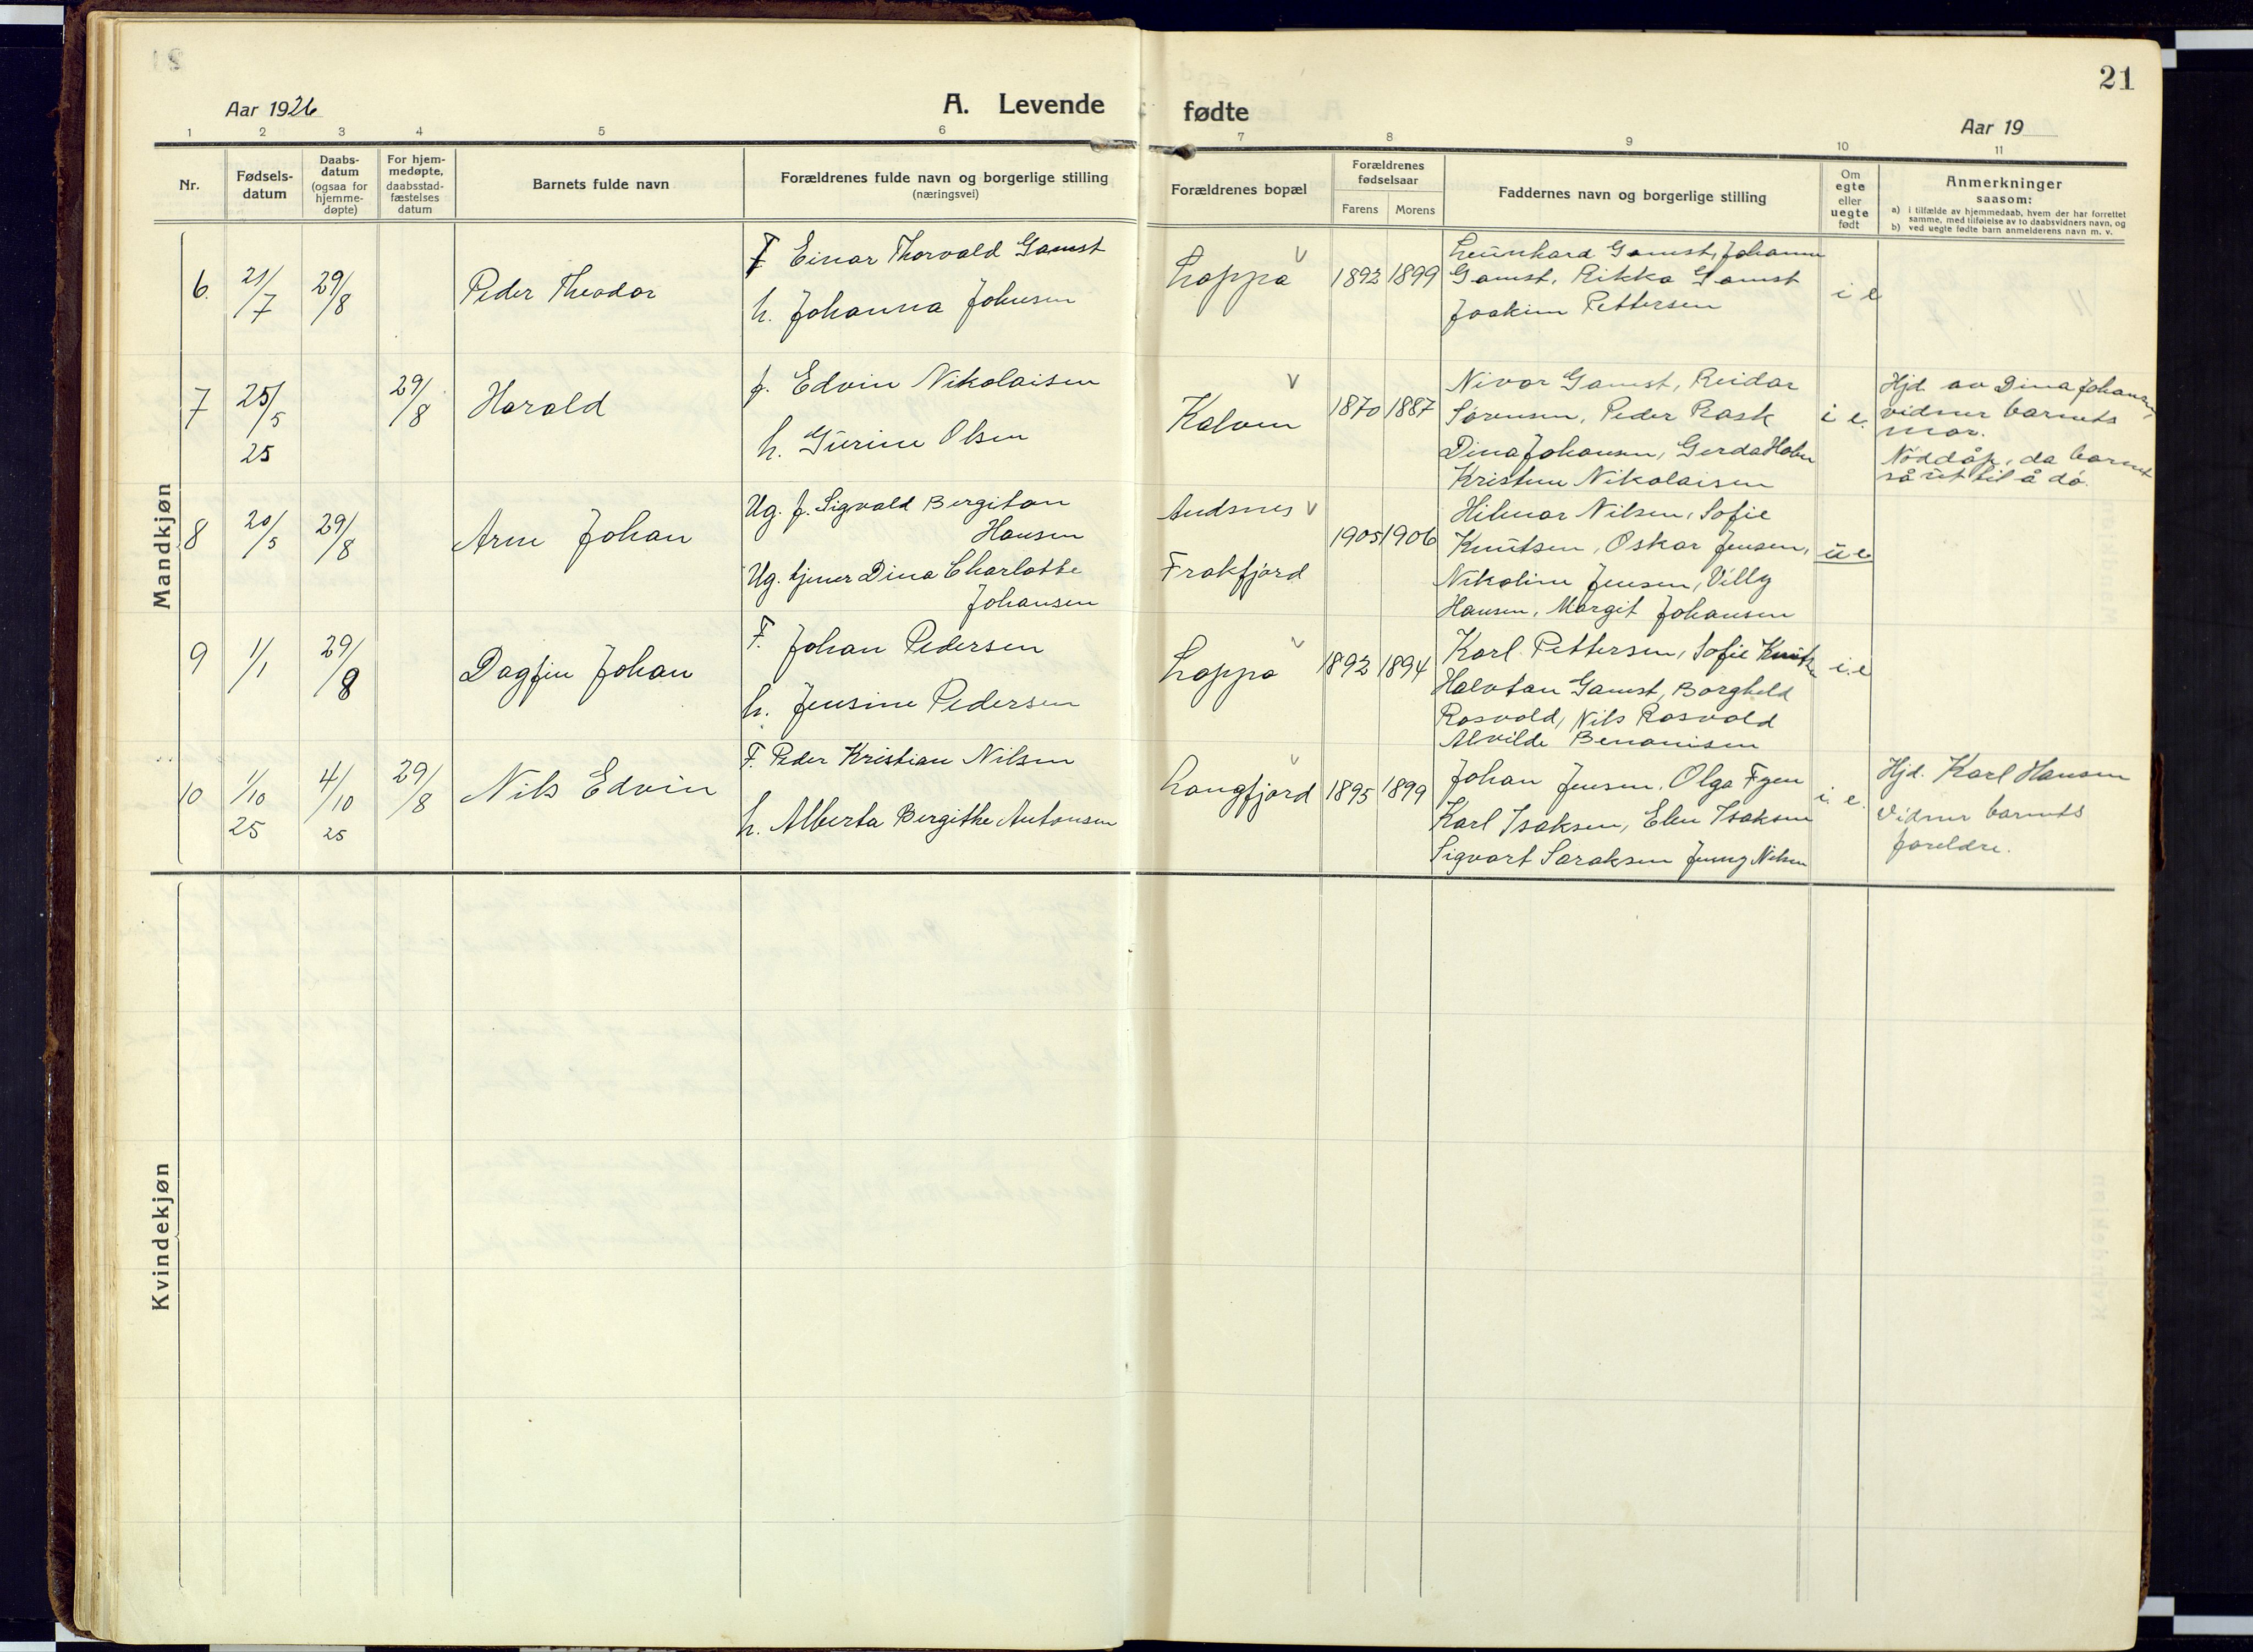 21
Aar 1926
A. Levende fødte
Aar 19
1 2 3 4 5 6 7 8 9 10 11
Nr.
Fødsels-
datum
Daabs-
datum
(ogsaa for
hjemme-
døpte)
For hjem-
medøpte,
daabsstad-
fæstelses
datum
Barnets fulde navn
Forældrenes fulde navn og borgerlige stilling
(næringsvei)
Forældrenes bopæl
Forældrenes
fødselsaar
Farens Morens
Faddernes navn og borgerlige stilling
Om
egte
eller
uegte
født
Anmerkninger
saasom:
a) i tilfælde av hjemmedaab, hvem der har forrettet
samme, med tilføielse av to daabsvidners navn, og
b) ved uegte fødte barn anmelderens navn m. v.
Mandkjøn
6. 21/7 29/8 Peder Theodor
F Einar Thorvald Gamst
h. Johanna Johnsen
Loppa v 1892 1899
Leünhard Gamst, Johanne
Gamst, Rikka Gamst
Joakim Pettersen
i e
7 25/5 25 29/8 Harald
f. Edvin Nikolaisen
h. Gürine Olsen
Kalven v 1870 1887
Nivar Gamst, Reidar
Sørensen, Peder Rask
Dina Johansen, Gerda
Kristine Nikolaisen
i e.
Hjd. av Dina Johansen,
vidner barnets
mor.
Nøddåp, da barnet
så üt til å dø.
8 20/5 29/8 Arne Johan
Ug. f. Sigvald Bergiton
Hansen
Ug. tjener Dina Charlotte
Johansen
Andsnes v
Frakfjord
1905 1906
Hilmar Nilsen, Sofie
Knütsen, Oskar Jensen,
Nikoline Jensen, Villy
Hansen, Margit Johansen
ü e
9 1/1 29/8 Dagfin Johan
F. Johan Pedersen
h. Jensine Pedersen
Loppa v 1892 1894
Karl Pettersen, Sofie
Halvtan Gamst, Borghild
Rosvold, Nils Rosvold
Alvilde Benonisen
i.e
10 1/10 25 4/10 25 29/8 Nils Edvin
F. Peder Kristian Nilsen
h. Alberta Bergithe Antonsen
Langfjord v 1895 1899
Johan Jensen, Olga Fyen
Karl Isaksen, Elen Isaksen
Sigvart Saraksen Jenny Nilsen
i. e.
Hjd. Karl Hansen
Vidner barnets
foreldre.
Kvindekjøn